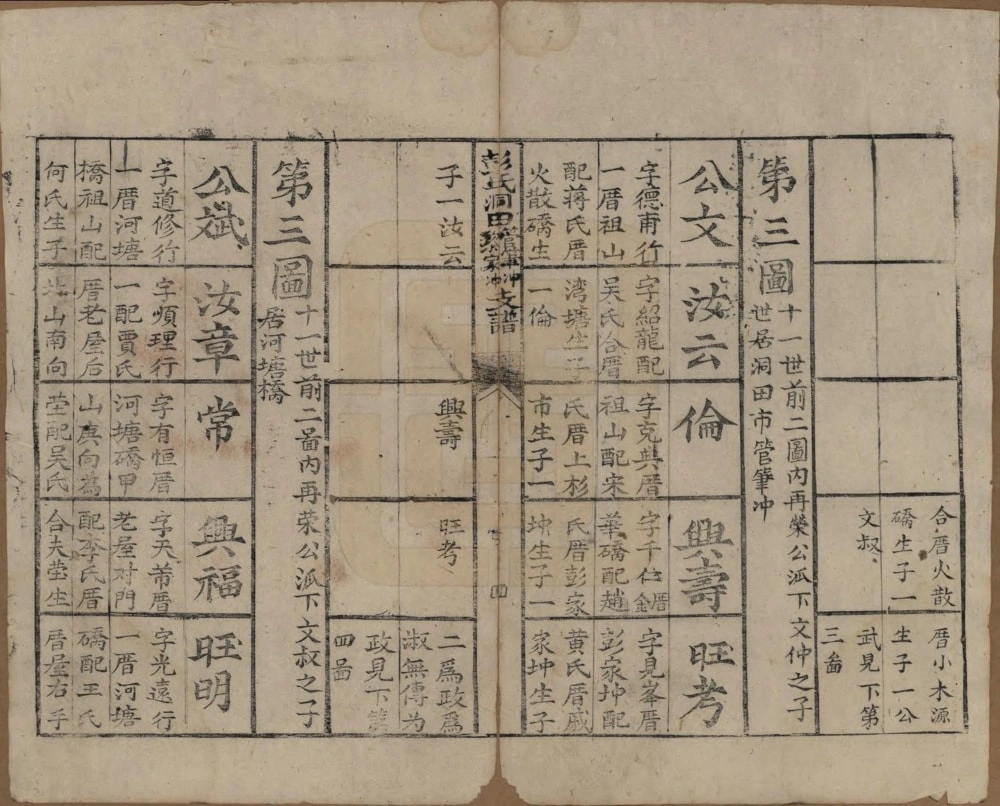 合厝火散
礄生子一
文叔
厝小木源
生子一公
武見下第
三畨
第三圖
十一世前二圖内再榮公泒下文仲之子
世居洞田市管筆冲
公文
字德甫行
一厝祖山
配蒋氏厝
火散礄生
汝云
字紹龍配
吴氏合厝
湾塘生子
一倫
倫
字克與厝
祖山配宋
氏厝上杉
市生子一
興壽
字千仕厝金
華礄配趙
氏厝彭家
坤生子一
旺考
字見峯厝
彭家坤配
黄氏厝戚
家坤生子
彭氏洞田
支譜
四
子一汝云
興壽
旺考
二爲政爲
淑無傳为
政見下第
四畨
第三圖
十一世前二畨内再荣公泒下文叔之子
居河塘橋
公斌
字道修行
一厝河塘
橋祖山配
何氏生子
汝章
字煩理行
一配賈氏
厝老屋后
山南向
常
字有恒厝
河塘礄甲
山庚向為
茔配吴氏
興福
字天莆厝
老屋对門
配李氏厝
合夫茔生
旺明
字光遠行
一厝河塘
礄配王氏
厝屋右手